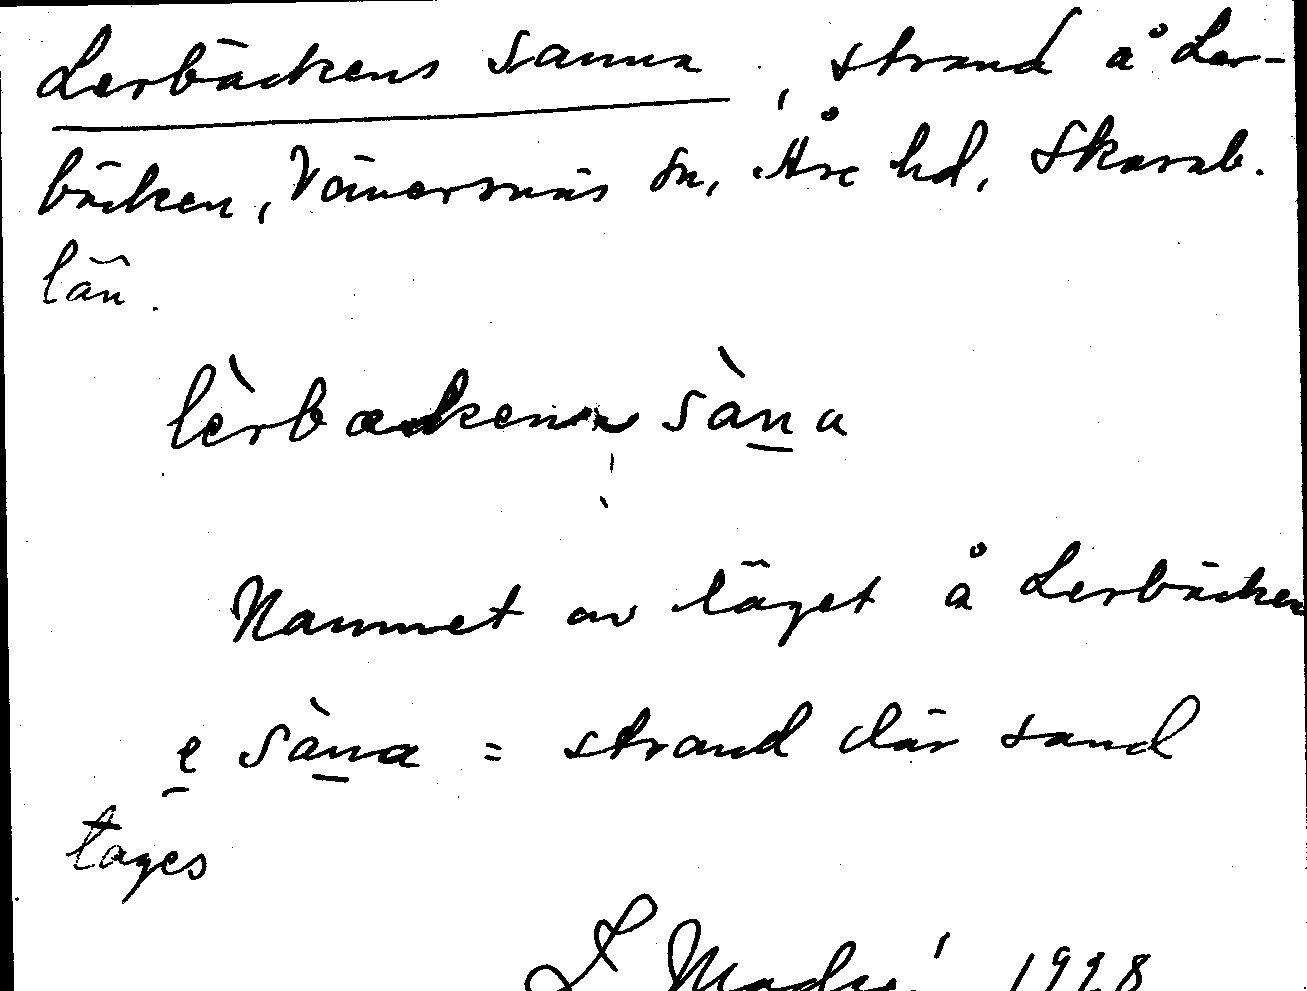 Lerbäckens sanna, strand å Ler-
bäcken, Vänersnäs sn, Åse hd, Skarab.
län.
lèrbæckens sàna
Namnet av läget å Lerbäcken
e sàna = strand där sand
tages
1928